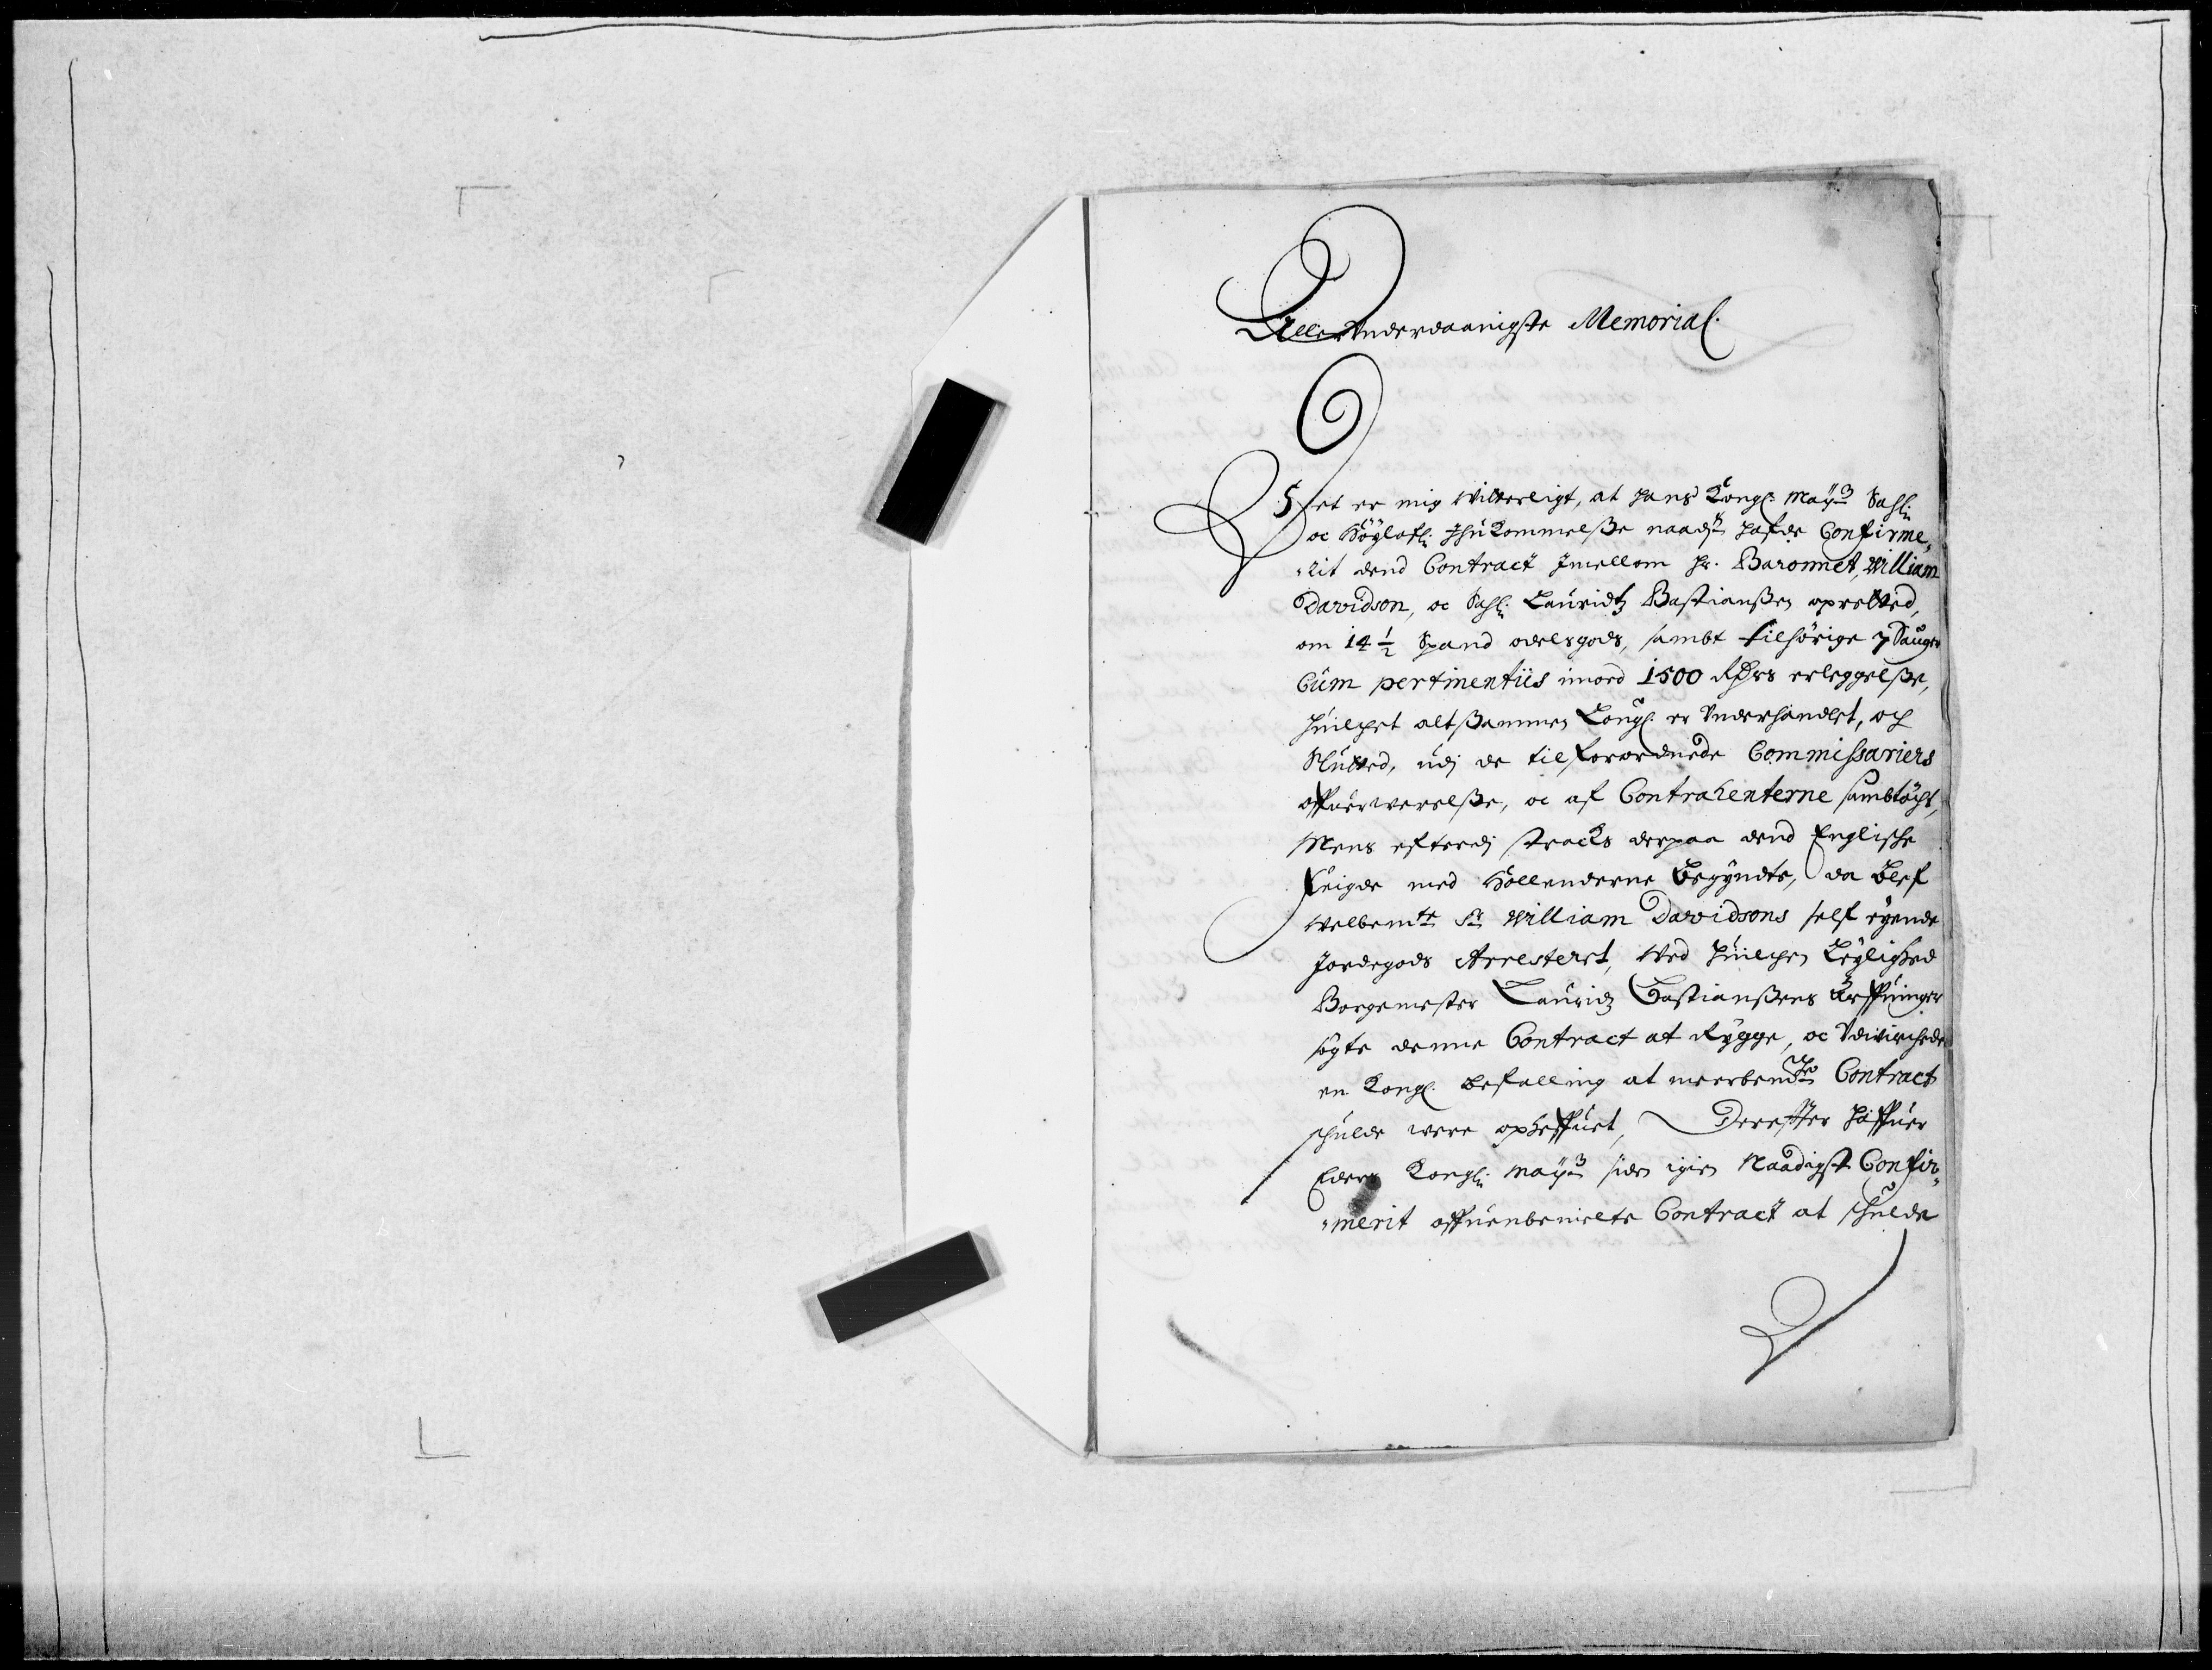 AllerVnderdaanigste Memorial.
Det er mig Witterligt, at Hans Kongl: Mayts Sahl:
oc Höyloflig Ihukommelsze naadst hafde Confirme,,
,,rit dend Contract Imellom Hr. Baronnet, William
Davidson, oc Sahl: Lauridtz Bastianszen opretted,
om 14 1/2 Spand odelsgods, sambt tilhörige 7 Sauger
Cum pertinentiis imod 1500 Rdrs erleggelsze,
huilchet altszammen Longl: er Vnderhandlet, och
Slutted, udj de tilforordnede Commissariers
offuerwerelsze, oc af Contrahenterne sambtöcht,
Mens efterdj stracks derpaa dend Englische
feigde med Hollenderne begyndte, da blef
welbemte Sr William Davidsons self eyende
Jordegods Arresteret, Wed huilchen Leylighed
Borgemester Lauridz Bastianszens Arffuinger
sögte denne Contract at Rygge, oc Vdwirchede
en Kongl: befalling at meerbemte Contract
schulde were opheffuet, Derefter haffuer
Eders Kongl: Mayts siden igien Naadigst Confir,,
,,merit offuenbemelte Contract at schulde